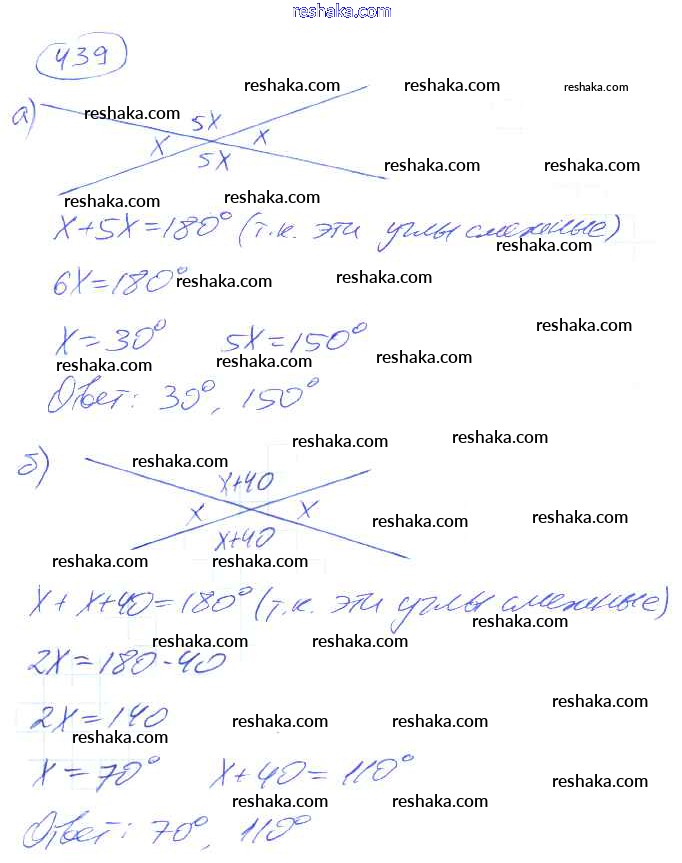 reshaka.com
439
reshaka.com reshaka.com reshaka.com
а) reshaka.com 5x
x x
5x reshaka.com reshaka.com
reshaka.com reshaka.com
x+5x=180° (т.к. эти углы смежные)
reshaka.com
6x=180° reshaka.com reshaka.com
reshaka.com
x=30° 5x=150°
reshaka.com reshaka.com reshaka.com
Ответ: 30°, 150°
reshaka.com reshaka.com
б) reshaka.com
x+40
x x
x+40 reshaka.com reshaka.com
reshaka.com reshaka.com
x+x+40=180° (т.к. эти углы смежные)
reshaka.com
reshaka.com reshaka.com
2x=180-40
reshaka.com
2x=140 reshaka.com reshaka.com
reshaka.com
x=70° x+40=110°
reshaka.com
reshaka.com reshaka.com
Ответ: 70°, 110°